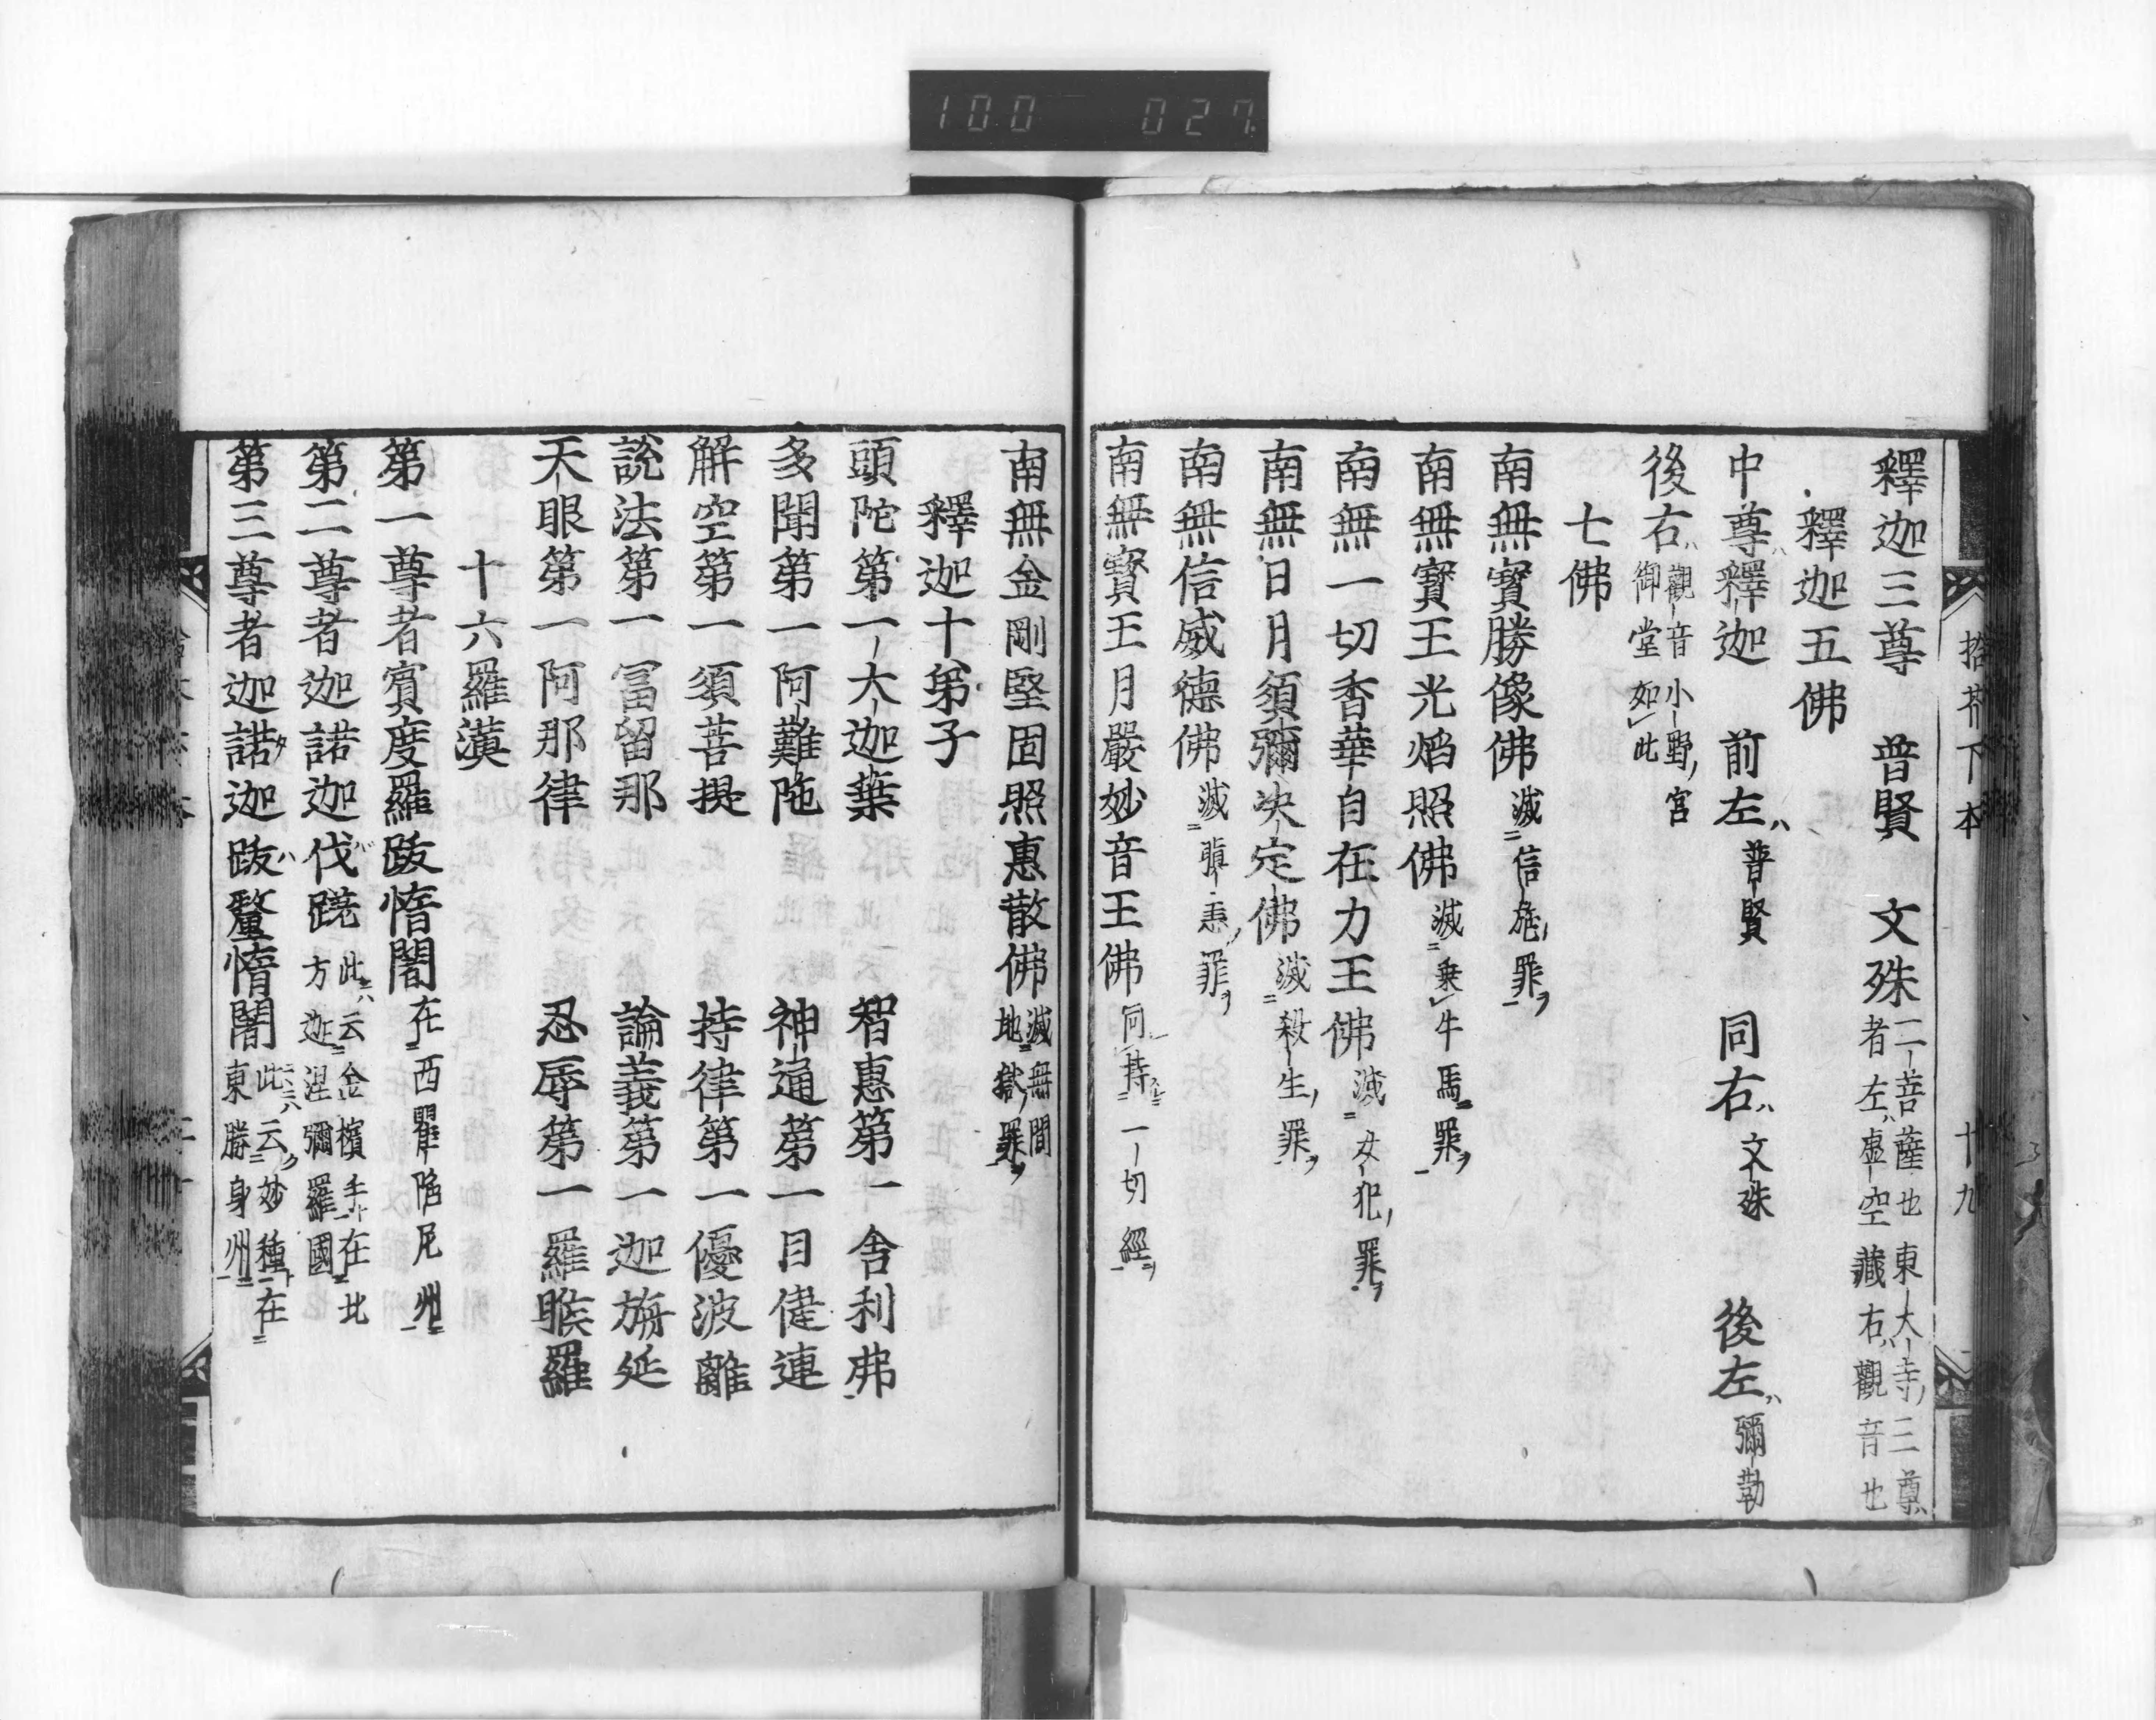 100 027
拾芥下本 十九
釋迦三尊 普賢 文殊 二菩薩也東大寺三尊者左ハ虚空藏右ハ觀音也
釋迦五佛
中尊ハ釋迦 前左ハ普賢 同右ハ文殊 後左ハ彌勒
後右ハ觀音小野宮御堂如此
七佛
南無寳勝像佛 滅信施罪ヲ
南無寳王光焰照佛 滅乗牛馬罪ヲ
南無一切香華自在力王佛 滅女犯罪ヲ
南無日月須彌决定佛 滅殺生罪ヲ
南無信威德佛 滅瞋恚罪ヲ
南無寳王月嚴妙音王佛 同持一切經ヲ
南無金剛堅固照惠散佛 滅無間地獄罪ヲ
釋迦十弟子
頭陀第一大迦葉 智惠第一舍利弗
多聞第一阿難陁 神通第一目揵連
解空第一須菩提 持律第一優波離
說法第一冨留那 論義第一迦旃延
天眼第一阿那律 忍辱第一羅睺羅
十六羅漢
第一尊者賓度羅跋惰闍 在西瞿陁尼州
第二尊者迦諾迦伐蹉 此ニハ云金 在北方迦濕彌羅國
第三尊者迦諾迦跋釐惰闍 此ニハ云妙種在東勝身州